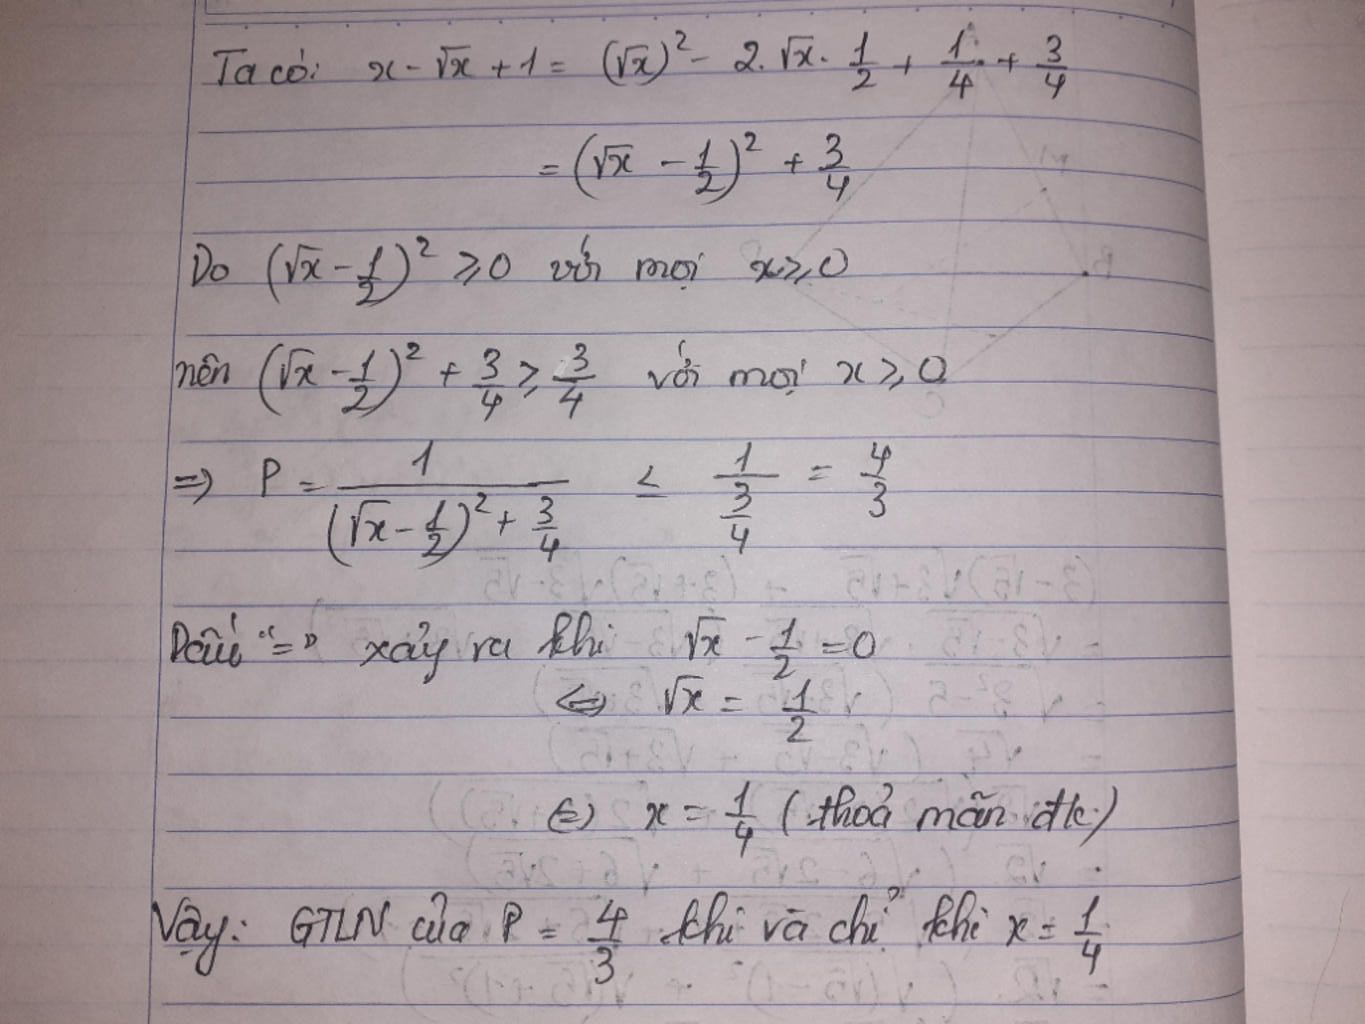 Ta có: x - √x + 1 = (√x)² - 2.√x. 1/2 + 1/4 + 3/4
= (√x - 1/2)² + 3/4
Do (√x - 1/2)² ≥ 0 với mọi x ≥ 0
nên (√x - 1/2)² + 3/4 ≥ 3/4 với mọi x ≥ 0
=> P = 1/((√x - 1/2)² + 3/4) ≤ 1/(3/4) = 4/3
Dấu "=" xảy ra khi √x - 1/2 = 0
<=> √x = 1/2
<=> x = 1/4 (thoả mãn đk)
Vậy: GTLN của P = 4/3 khi và chỉ khi x = 1/4